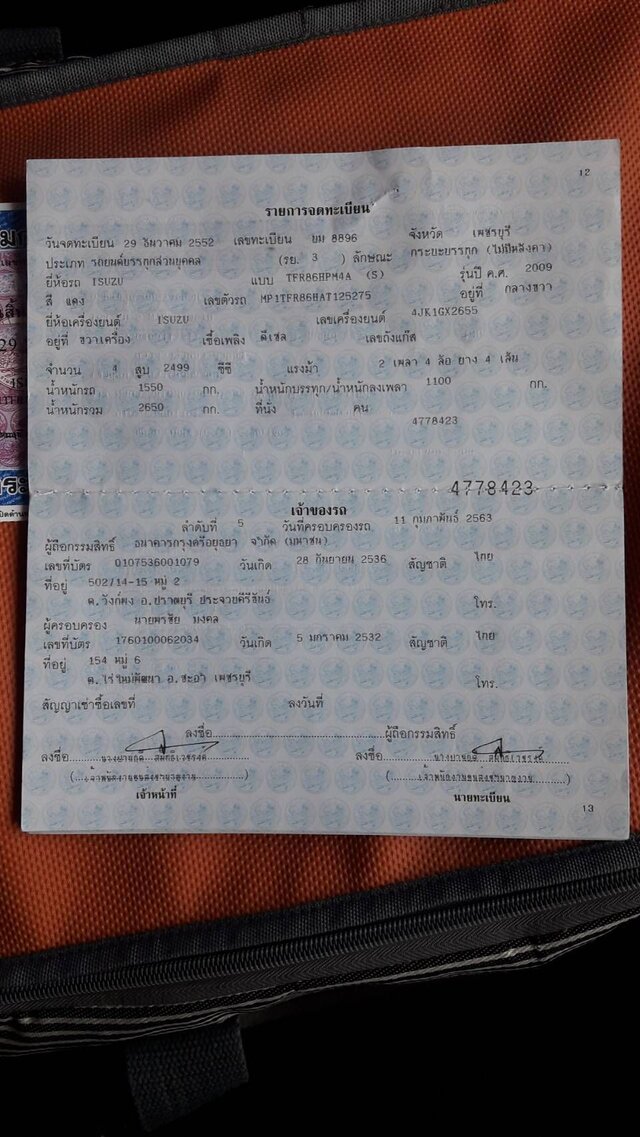 12
รายการจดทะเบียน
วันจดทะเบียน 29 ธันวาคม 2552 เลขทะเบียน บม 8896 จังหวัด เพชรบุรี
ประเภท รถยนต์บรรทุกส่วนบุคคล (รย. 3 ) ลักษณะ กระบะบรรทุก (ไม่มีหลังคา)
ยี่ห้อรถ ISUZU แบบ TFR86HPM4A (S) รุ่นปี ค.ศ. 2009
สี แดง เลขตัวรถ MP1TFR86HAT125275 อยู่ที่ กลางขวา
ยี่ห้อเครื่องยนต์ ISUZU เลขเครื่องยนต์ 4JK1GX2655
อยู่ที่ ขวาเครื่อง เชื้อเพลิง ดีเซล เลขถังแก๊ส
จำนวน 4 สูบ 2499 ซีซี แรงม้า 2 เพลา 4 ล้อ ยาง 4 เส้น
น้ำหนักรถ 1550 กก. น้ำหนักบรรทุก/น้ำหนักลงเพลา 1100 กก.
น้ำหนักรวม 2650 กก. ที่นั่ง คน
4778423
4778423
เจ้าของรถ
ลำดับที่ 5 วันที่ครอบครองรถ 11 กุมภาพันธ์ 2563
ผู้ถือกรรมสิทธิ์ ธนาคารกรุงศรีอยุธยา จำกัด (มหาชน)
เลขที่บัตร 0107536001079 วันเกิด 28 กันยายน 2536 สัญชาติ ไทย
ที่อยู่ 502/14-15 หมู่ 2
ต.วังก์พง อ.ปราณบุรี ประจวบคีรีขันธ์ โทร.
ผู้ครอบครอง นายพรชัย มงคล
เลขที่บัตร 1760100062034 วันเกิด 5 มกราคม 2532 สัญชาติ ไทย
ที่อยู่ 154 หมู่ 6
ต.ไร่ใหม่พัฒนา อ.ชะอำ เพชรบุรี โทร.
สัญญาเช่าซื้อเลขที่ ลงวันที่
ลงชื่อ ผู้ถือกรรมสิทธิ์
ลงชื่อ ลงชื่อ
เจ้าหน้าที่ นายทะเบียน
13